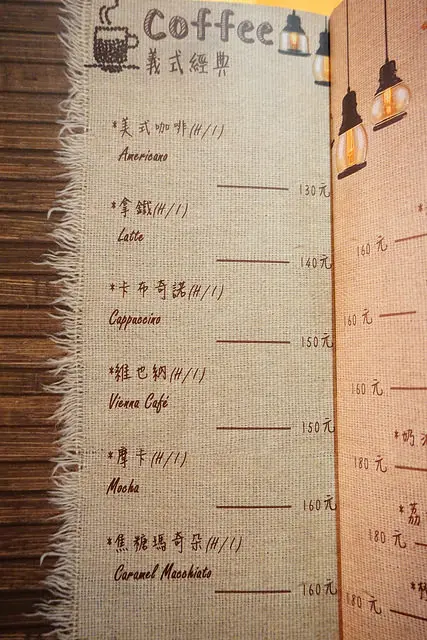 Coffee
義式經典
*美式咖啡(H/I)
Americano
130元
*拿鐵(H/I)
Latte
140元
*卡布奇諾(H/I)
Cappuccino
150元
*維也納(H/I)
Vienna Café
150元
*摩卡(H/I)
Mocha
160元
*焦糖瑪奇朵(H/I)
Caramel Macchiato
160元
160元
160元
160元
*奶
180元
*荔
180元
180元